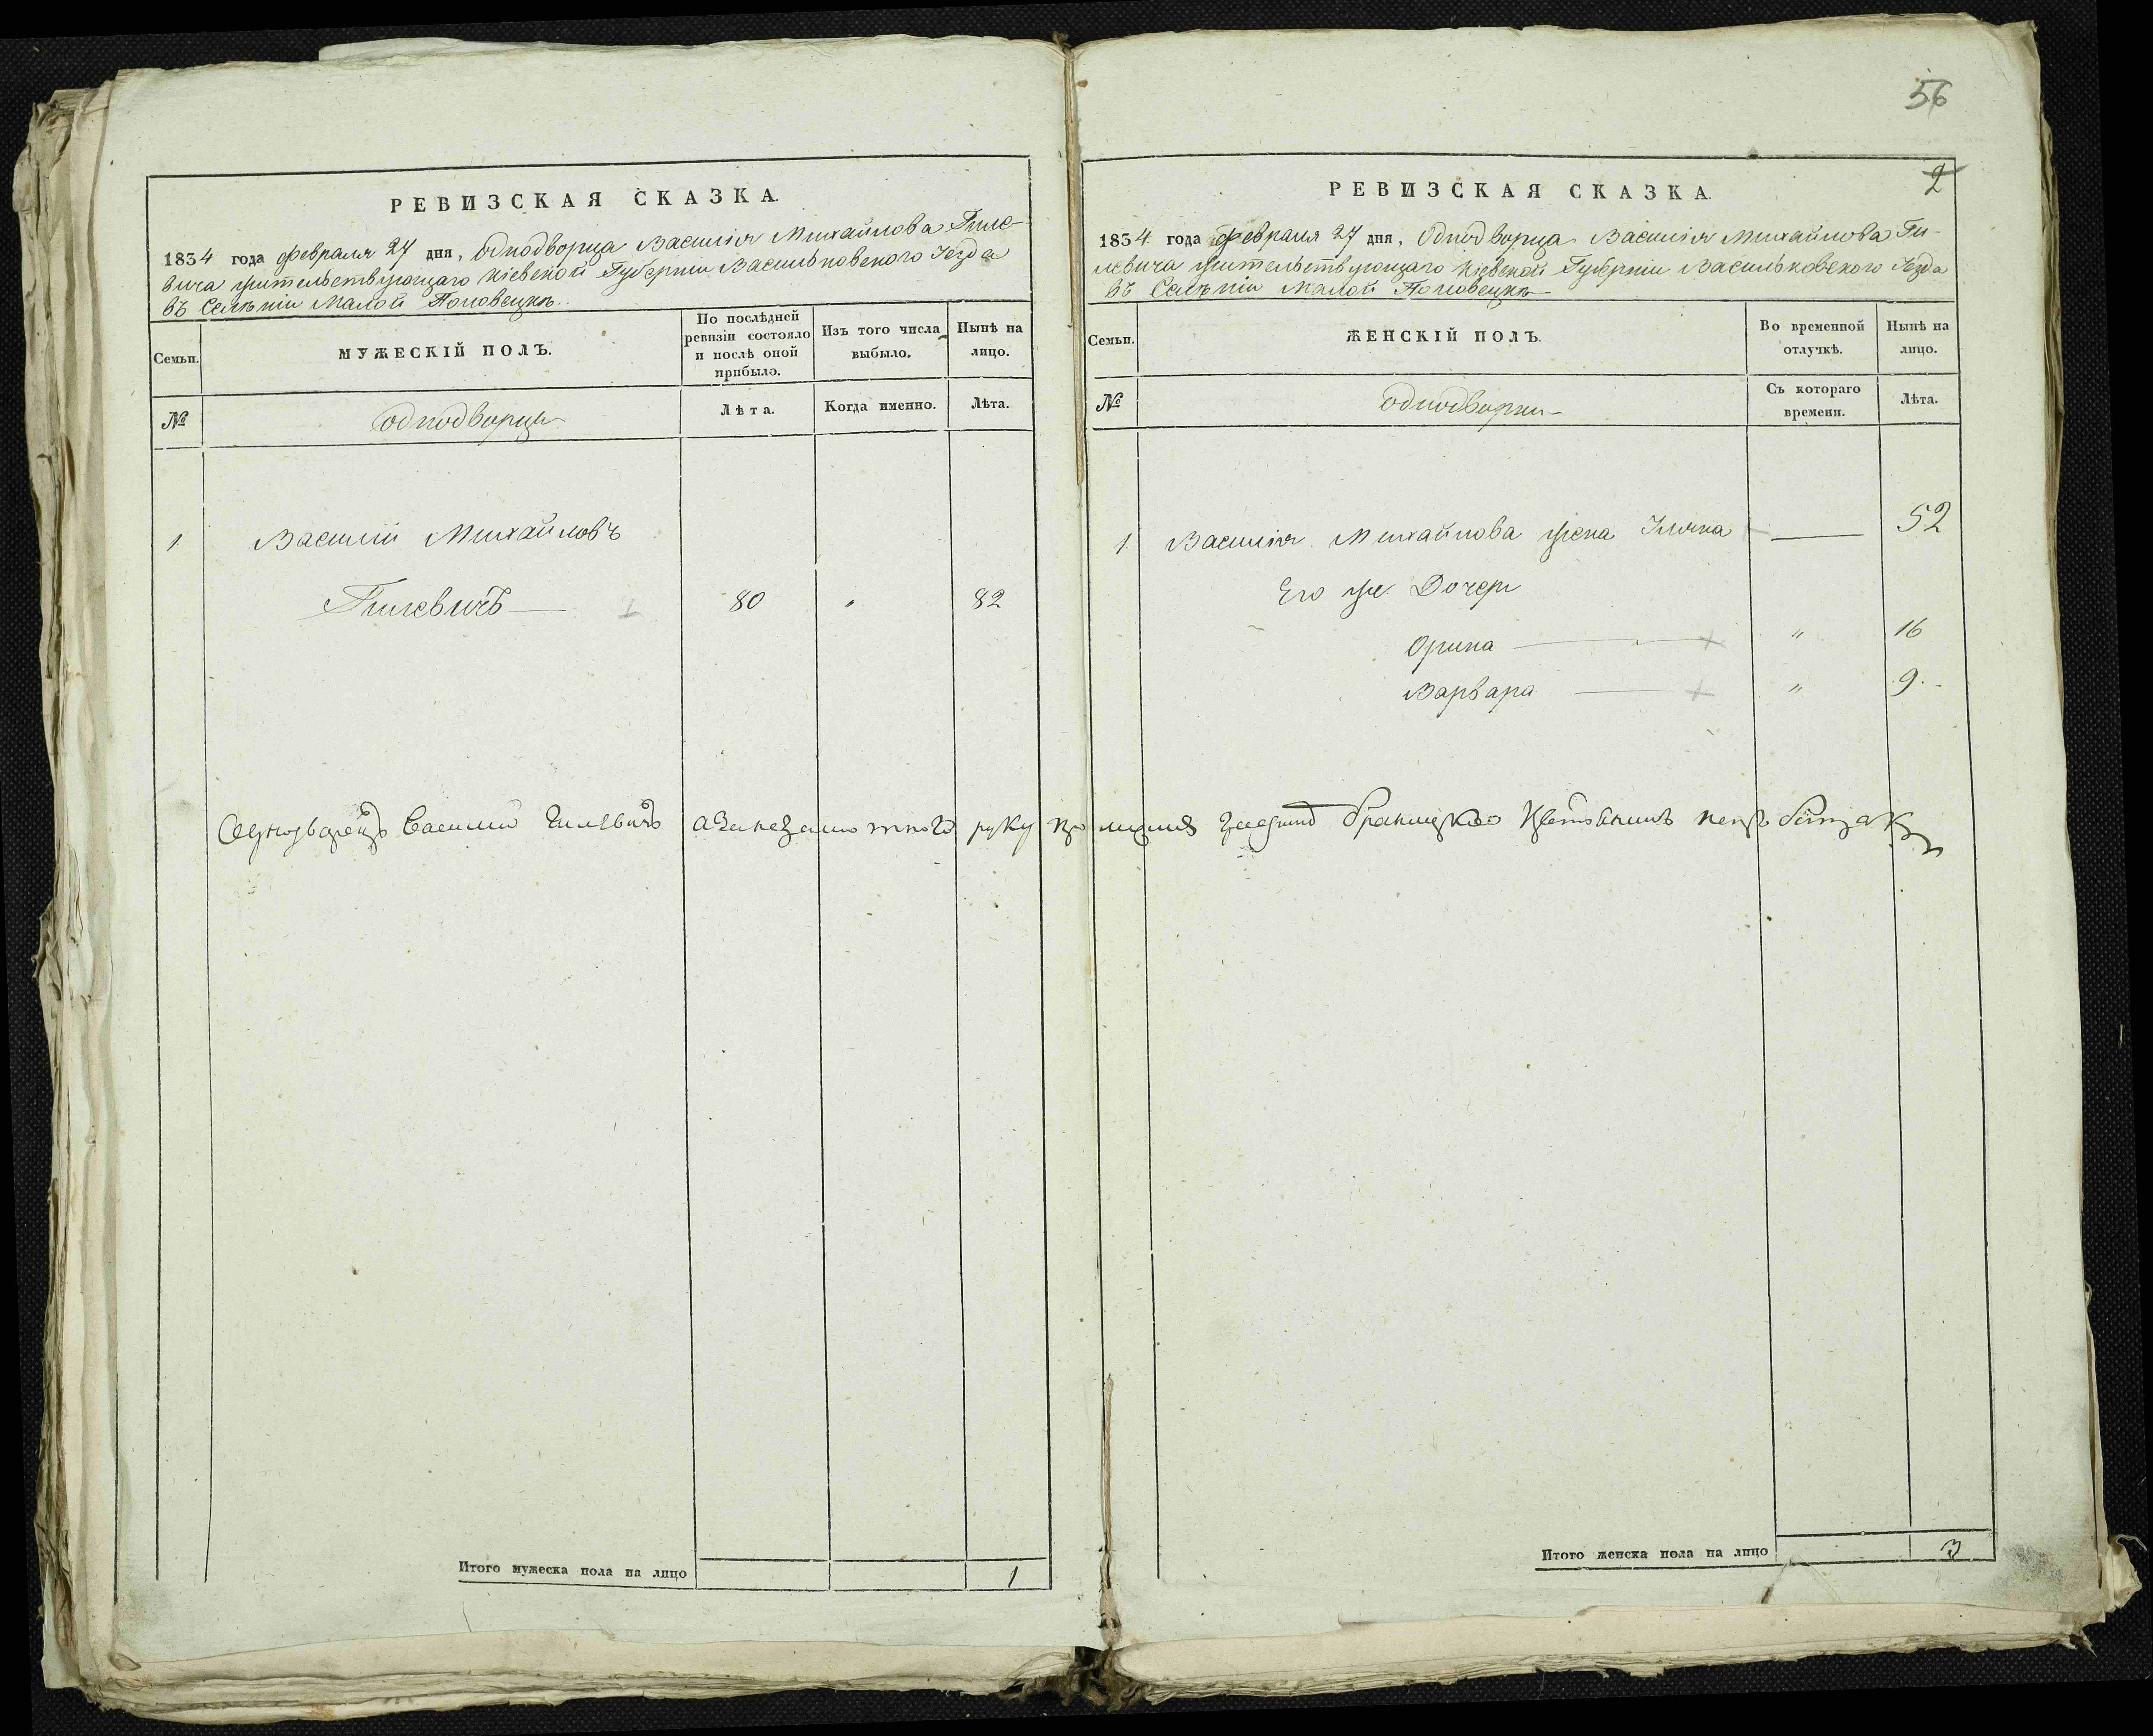 56
РЕВИЗСКАЯ СКАЗКА.
1834 года февраля 27 дня, Однодворца Василія Михайлова Гиле-
вича жительствующаго Кіевской Губерніи Васильковского Уезда
въ Селѣніи Малой Половецкѣ
Семьи.
МУЖЕСКІЙ ПОЛЪ.
По послѣдней ревизіи состояло и послѣ оной прибыло.
Изъ того числа выбыло.
Нынѣ на лицо.
№
однодворцы
Лѣта.
Когда именно.
Лѣта.
1 Василій Михайловъ
Гилевичъ — 80 " 82
Итого мужеска пола на лицо 1
2
РЕВИЗСКАЯ СКАЗКА.
1834 года февраля 27 дня, Однодворца Василія Михайлова Ги-
левича жительствующаго Кіевской Губерніи Васильковского Уезда
въ Селѣніи Малой Половецкѣ
Семьи.
ЖЕНСКІЙ ПОЛЪ.
Во временной отлучкѣ.
Нынѣ на лицо.
№
однодворки
Съ котораго времени.
Лѣта.
1 Василія Михайлова жена — 52
Его же Дочери
Орина — " 16
Варвара — " 9
Однодворецъ Василий Гилевичъ а за незнаниемъ его руку
Итого женска пола на лицо 3